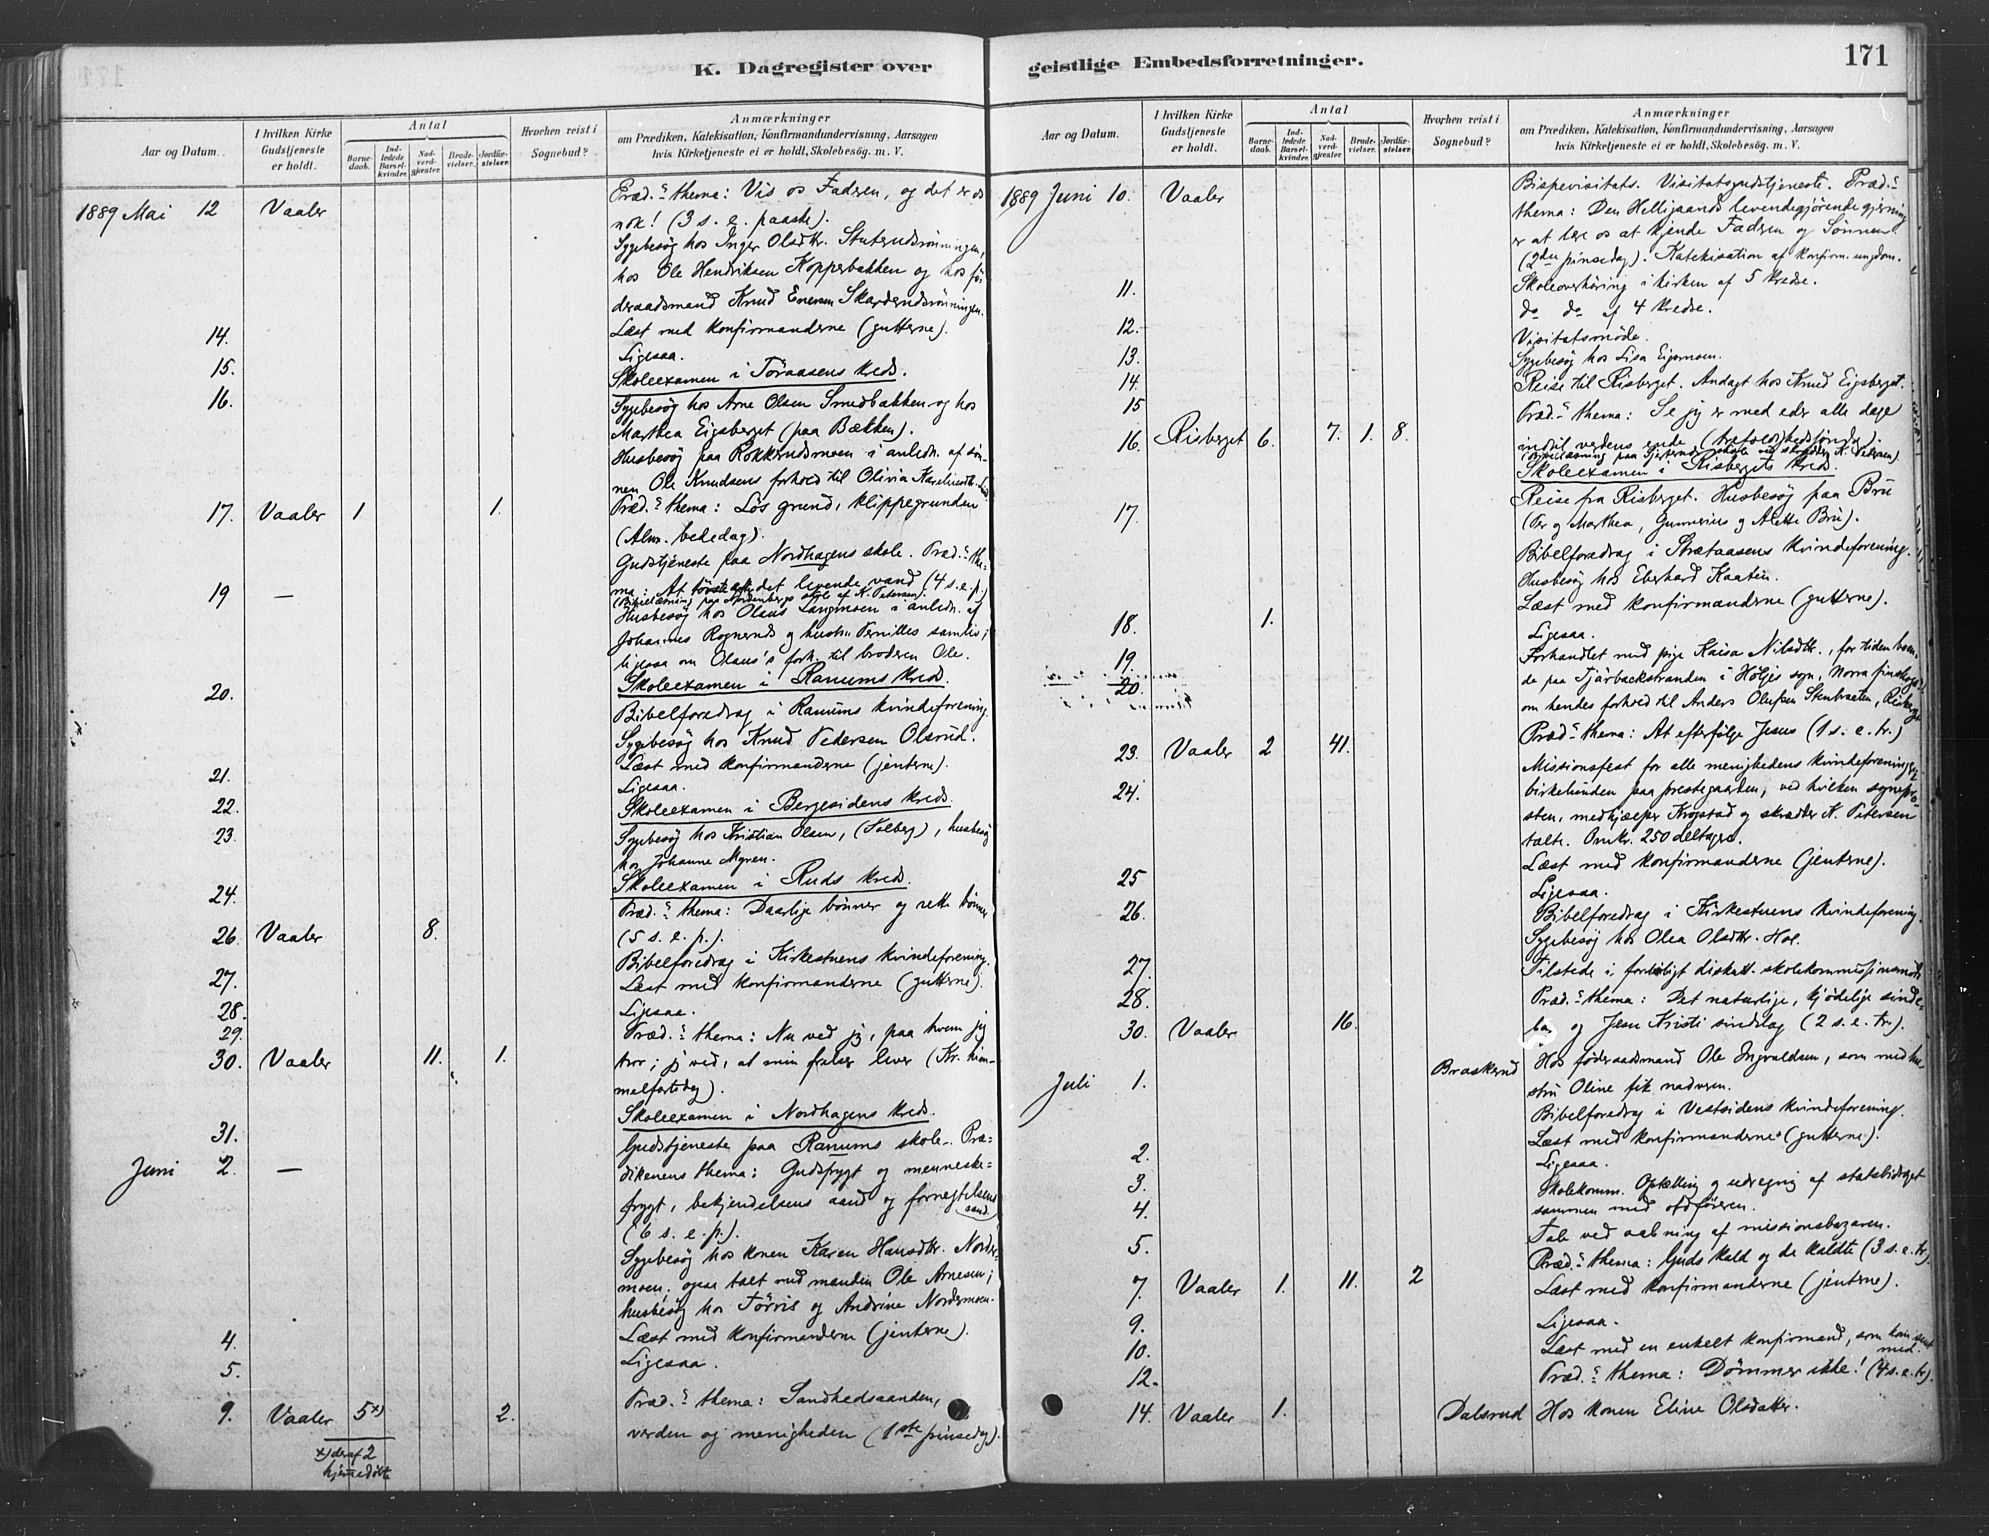 K. Dagregister over
Aar og Datum.
I hvilken Kirke Gudstjeneste er holdt.
Antal
Barnedaab.
Indledede Barselkvinder.
Nadverdgjester.
Brudevielser.
Jordfæstelser.
Hvorhen reist i Sognebud?
Anmærkninger
om Prædiken, Katekisation, Konfirmandundervisning, Aarsagen
hvis Kirketjeneste ei er holdt, Skolebesøg. m. V.
1889 Mai 12 Vaaler Præd.s thema: Vis os Faderen, og det er os
nok! (3 s. e. paaske).
Sygebesøg hos Inger Olsdtr. Staterudsrønningen,
hos Ole Hendriksen Kopperbakken og hos fö-
deraadsmand Knud Enersen Skarderudsrønningen.
14. Læst med konfirmanderne (gutterne).
15. Ligesaa.
16. Skoleexamen i Töraasens kreds.
Sygebesøg hos Arne Olsen Smedbakken og hos
Marthea Eigsberget (paa Bækken).
Husbesøg paa Rokkerudsmoen i anledn. af søn-
nen Ole Knudsens forhold til Olivia
17. Vaaler 1 1. Præd.s thema: Lös grund, klippegrunden
(Alm. bededag).
19 — Gudstjeneste paa Nordhagens skole. Præd.s the-
ma: At törste efter det levende vand (4 s. e. p.)
(Bibellæsning paa Nordenbergs skole af K. Petersen).
Husbesøg hos Olaus Langmoen i anledn. af
Johannes Rognerud og hustru Pernilles samliv;
ligesaa om Olaus's forh. til broderen Ole.
20. Skoleexamen i Ranums kreds.
Bibelforedrag i Ranums kvindeforening.
Sygebesøg hos Knud Pedersen Olsrud.
21. Læst med konfirmanderne (jenterne).
22. Ligesaa.
23. Skoleexamen i Bergesidens kreds.
Sygebesøg hos Kristian Olsen, (Solberg), husbesøg
hos Johanne Myren.
24. Skoleexamen i Ruds kreds.
26. Vaaler 8. Præd.s thema: Daarlige bønner og rette bønner
(5 s. e. p.).
27. Bibelforedrag i Kirkestuens kvindeforening.
28. Læst med konfirmanderne (gutterne).
29. Ligesaa.
30. Vaaler 11. 1. Præd.s thema: Nu ved jeg, paa hvem jeg
tror; jeg ved, at min frelser lever (Kr. him-
melfartsdag).
31. Skoleexamen i Nordhagens kreds.
Juni 2. — Gudstjeneste paa Ranums skole. Præ-
dikenens thema: Gudsfrygt og menneske-
frygt, bekjendelsens aand og fornegtelsens
aand.
(6 s. e. p.).
Sygebesøg hos konen Karen Hansdtr. Norder-
moen, ogsaa talt med manden Ole Arnesen;
husbesøg hos Törris og Andrine Nordermoen.
4. Læst med konfirmanderne (jenterne).
5. Ligesaa.
9. Vaaler 5 x) 2. Præd.s thema: Sandhedsaanden,
verden og menigheden (1ste pinsedag).
x) deraf 2
hjemmedøbte
geistlige Embedsforretninger.
171
Aar og Datum.
I hvilken Kirke Gudstjeneste er holdt.
Antal
Barnedaab.
Indledede Barselkvinder.
Nadverdgjester.
Brudevielser.
Jordfæstelser.
Hvorhen reist i Sognebud?
Anmærkninger
om Prædiken, Katekisation, Konfirmandundervisning, Aarsagen
hvis Kirketjeneste ei er holdt, Skolebesøg. m. V.
1889 Juni 10. Vaaler Bispevisitats. Visitatsgudstjeneste. Præd.s
thema: Den Helligaands levendegjørende gjerning
er at lære os at kjende Faderen og Sønnen.
(2den pinsedag). Katekisation af konfirm. ungdom.
11. Skoleoverhøring i kirken af 5 kredse.
12. do do af 4 kredse.
13. Visitatsmøde.
14. Sygebesøg hos Lisa
15 Reise til Risberget. Andagt hos Knud Eigsberget.
16. Risberget 6. 7. 1. 8. Præd.s thema: Se jeg er med eder alle dage
indtil verdens ende (trefoldighedssøndag).
(Bibellæsning paa skole ved skrædder K. Petersen)
17. Skoleexamen i Risbergets kreds.
Reise fra Risberget. Husbesøg paa Bru
(Per og Marthea, Gunnerius og Alette Bru).
Bibelforedrag i Strætaasens kvindeforening.
Husbesøg hos Eberhard Kaaten.
18. 1. Læst med konfirmanderne (gutterne).
19. Ligesaa.
20. Forhandlet med pige Kaisa Nilsdtr., for tiden boen-
de paa Tjärbackstranden i Höljes sogn, Norra finskoga,
om hendes forhold til Anders Olufsen Stenbraaten, Risberget
23. Vaaler 2 41. Præd.s thema: At efterfølge Jesus (1 s. e. tr.)
24. Missionsfest for alle menighedens kvindeforeninger
birkelunden paa prestegaarden, ved hvilken sognepre-
sten, medhjælper Krogstad og skrædder K. Petersen
talte. Omkr. 250 deltagere.
25 Læst med konfirmanderne (jenterne).
26. Ligesaa.
Bibelforedrag i Kirkestuens kvindeforening.
Sygebesøg hos Olea Olsdtr. Hol.
27. Tilstede i
28.
30. Vaaler 16. Præd.s thema: Det naturlige, kjødelige sinde-
lag og Jesu Kristi sindelag (2 s. e. tr.).
Juli 1. Braskerud Hos føderaadsmand Ole Ingvaldsen, som med hu-
stru Oline fik nadveren.
Bibelforedrag i Vestsidens kvindeforening.
2. Læst med konfirmanderne (gutterne).
3. Ligesaa.
4. Skolekomm. Optælling og udregning af statsbidraget
sammen med ordføreren.
5. Tale ved aabning af missionsbazaren.
7. Vaaler 1. 11. 2 Præd.s thema: Guds kald og de kaldte (3 s. e. tr.)
9. Læst med konfirmanderne (jenterne).
10. Ligesaa.
12. Læst med en enkelt konfirmand, som kom sent
med.
14. Vaaler 1. Præd.s thema: Dømmer ikke! (4 s. e. tr.).
Dalsrud Hos konen Eline Olsdatter.